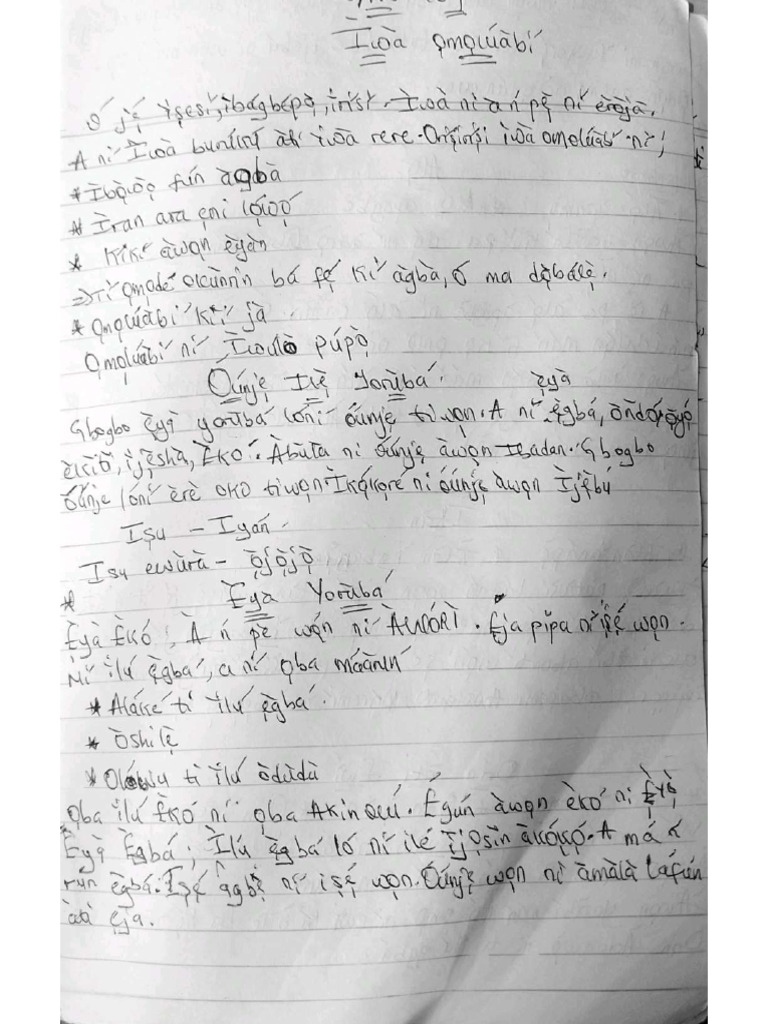 Ìwà ọmọlúàbí
Ó jẹ́ ìṣesí, ìbágbépọ̀, ìrísí. Ìwà ni a ń pè ní ẹ̀rọjà.
A ní Ìwà burúkú àti ìwà rere. Oríṣiríṣi ìwà ọmọlúàbí ni;
* Ìbọ̀wọ̀ fún àgbà
* Ìran ara ẹni lọ́wọ́
* Kíkí àwọn èyàn
⇒ Tí ọmọdé okùnrin bá fẹ́ kí àgbà, ó ma dọ̀bálẹ̀.
* Ọmọlúàbí kìí jà
Ọmọlúàbí ní Ìwúlò púpọ̀
Oúnjẹ Ilẹ̀ Yorùbá. ẹ̀yà
Gbogbo ẹ̀yà yorùbá lóní oúnjẹ tiwọn. A ní ẹ̀gbá, òndó, ọ̀yọ́
èkìtì, ìjẹ̀shà, Èkó. Àbùlà ni oúnjẹ àwọn Ibadan. Gbogbo
oúnjẹ lóní èrè oko tiwọn. Ìkọ́kọrẹ́ ni oúnjẹ àwọn Ìjẹ̀bú
Iṣu - Iyán.
Iṣu ewùrà - Ọ̀jọ̀jọ̀
* Ẹ̀ya Yorùbá
Ẹ̀yà Èkó; À ń pè wọ́n ní ÀWÓRÌ. Ẹja pípa ni iṣẹ́ wọn.
Ní ìlú ẹ̀gbá, a ní ọba máàrún
* Aláké ti ìlú ẹ̀gbá.
* Òshilẹ̀
* ti ìlú òdùdù
Ọba ìlú Èkó ni ọba Akinolú. Égún àwọn èkó ni Ẹ̀yọ̀
Ẹ̀yà Ẹ̀gbá; Ìlú ẹ̀gbá ló ní ilé Ìjọsìn àkọ́kọ́. A má
run ẹ̀gbá. Iṣẹ́ àgbẹ̀ ni iṣẹ́ wọn. Oúnjẹ wọn ni àmàlà láfún
àti ẹja.